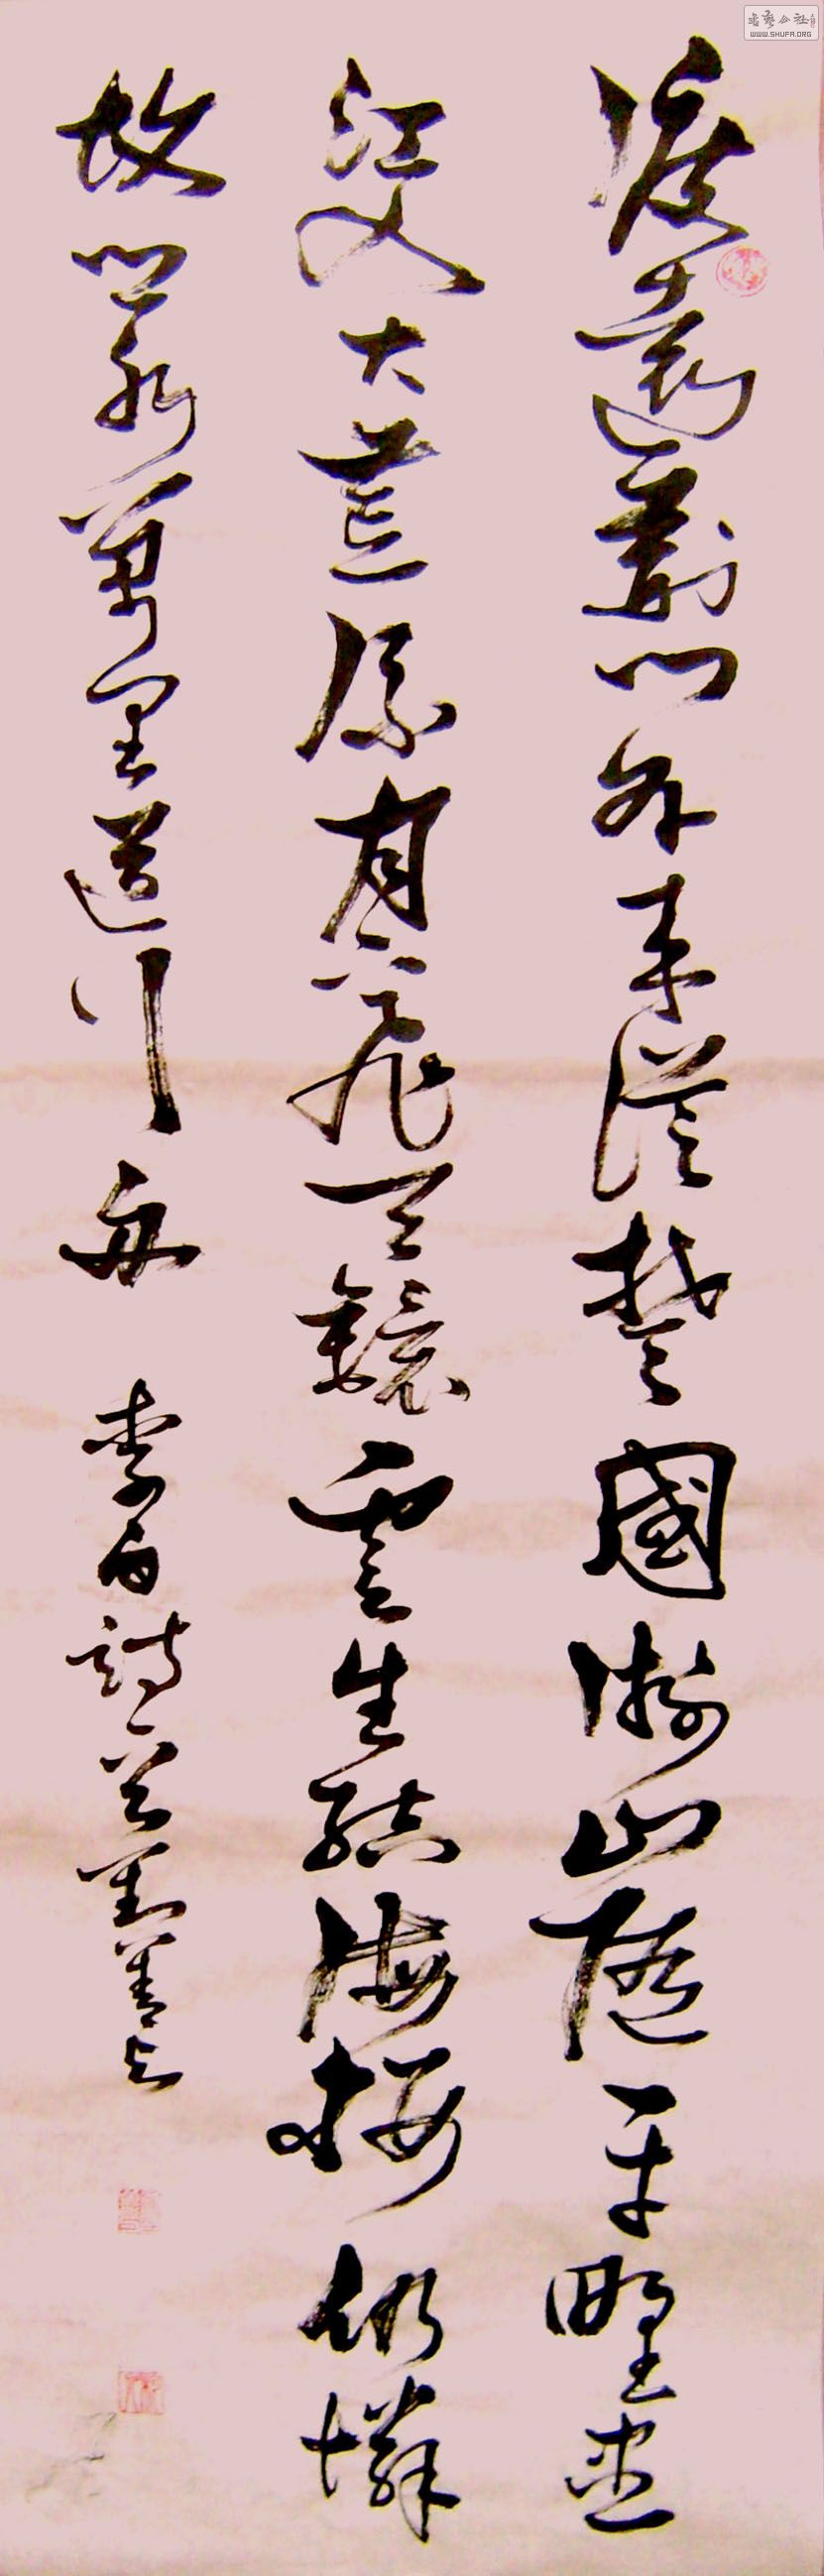 書藝公社
WWW.SHUFA.ORG
渡遠荊門外來從楚國游山隨平野盡
江入大荒流月下飛天鏡雲生結海樓仍憐
故鄉水萬里送行舟 李白詩一首